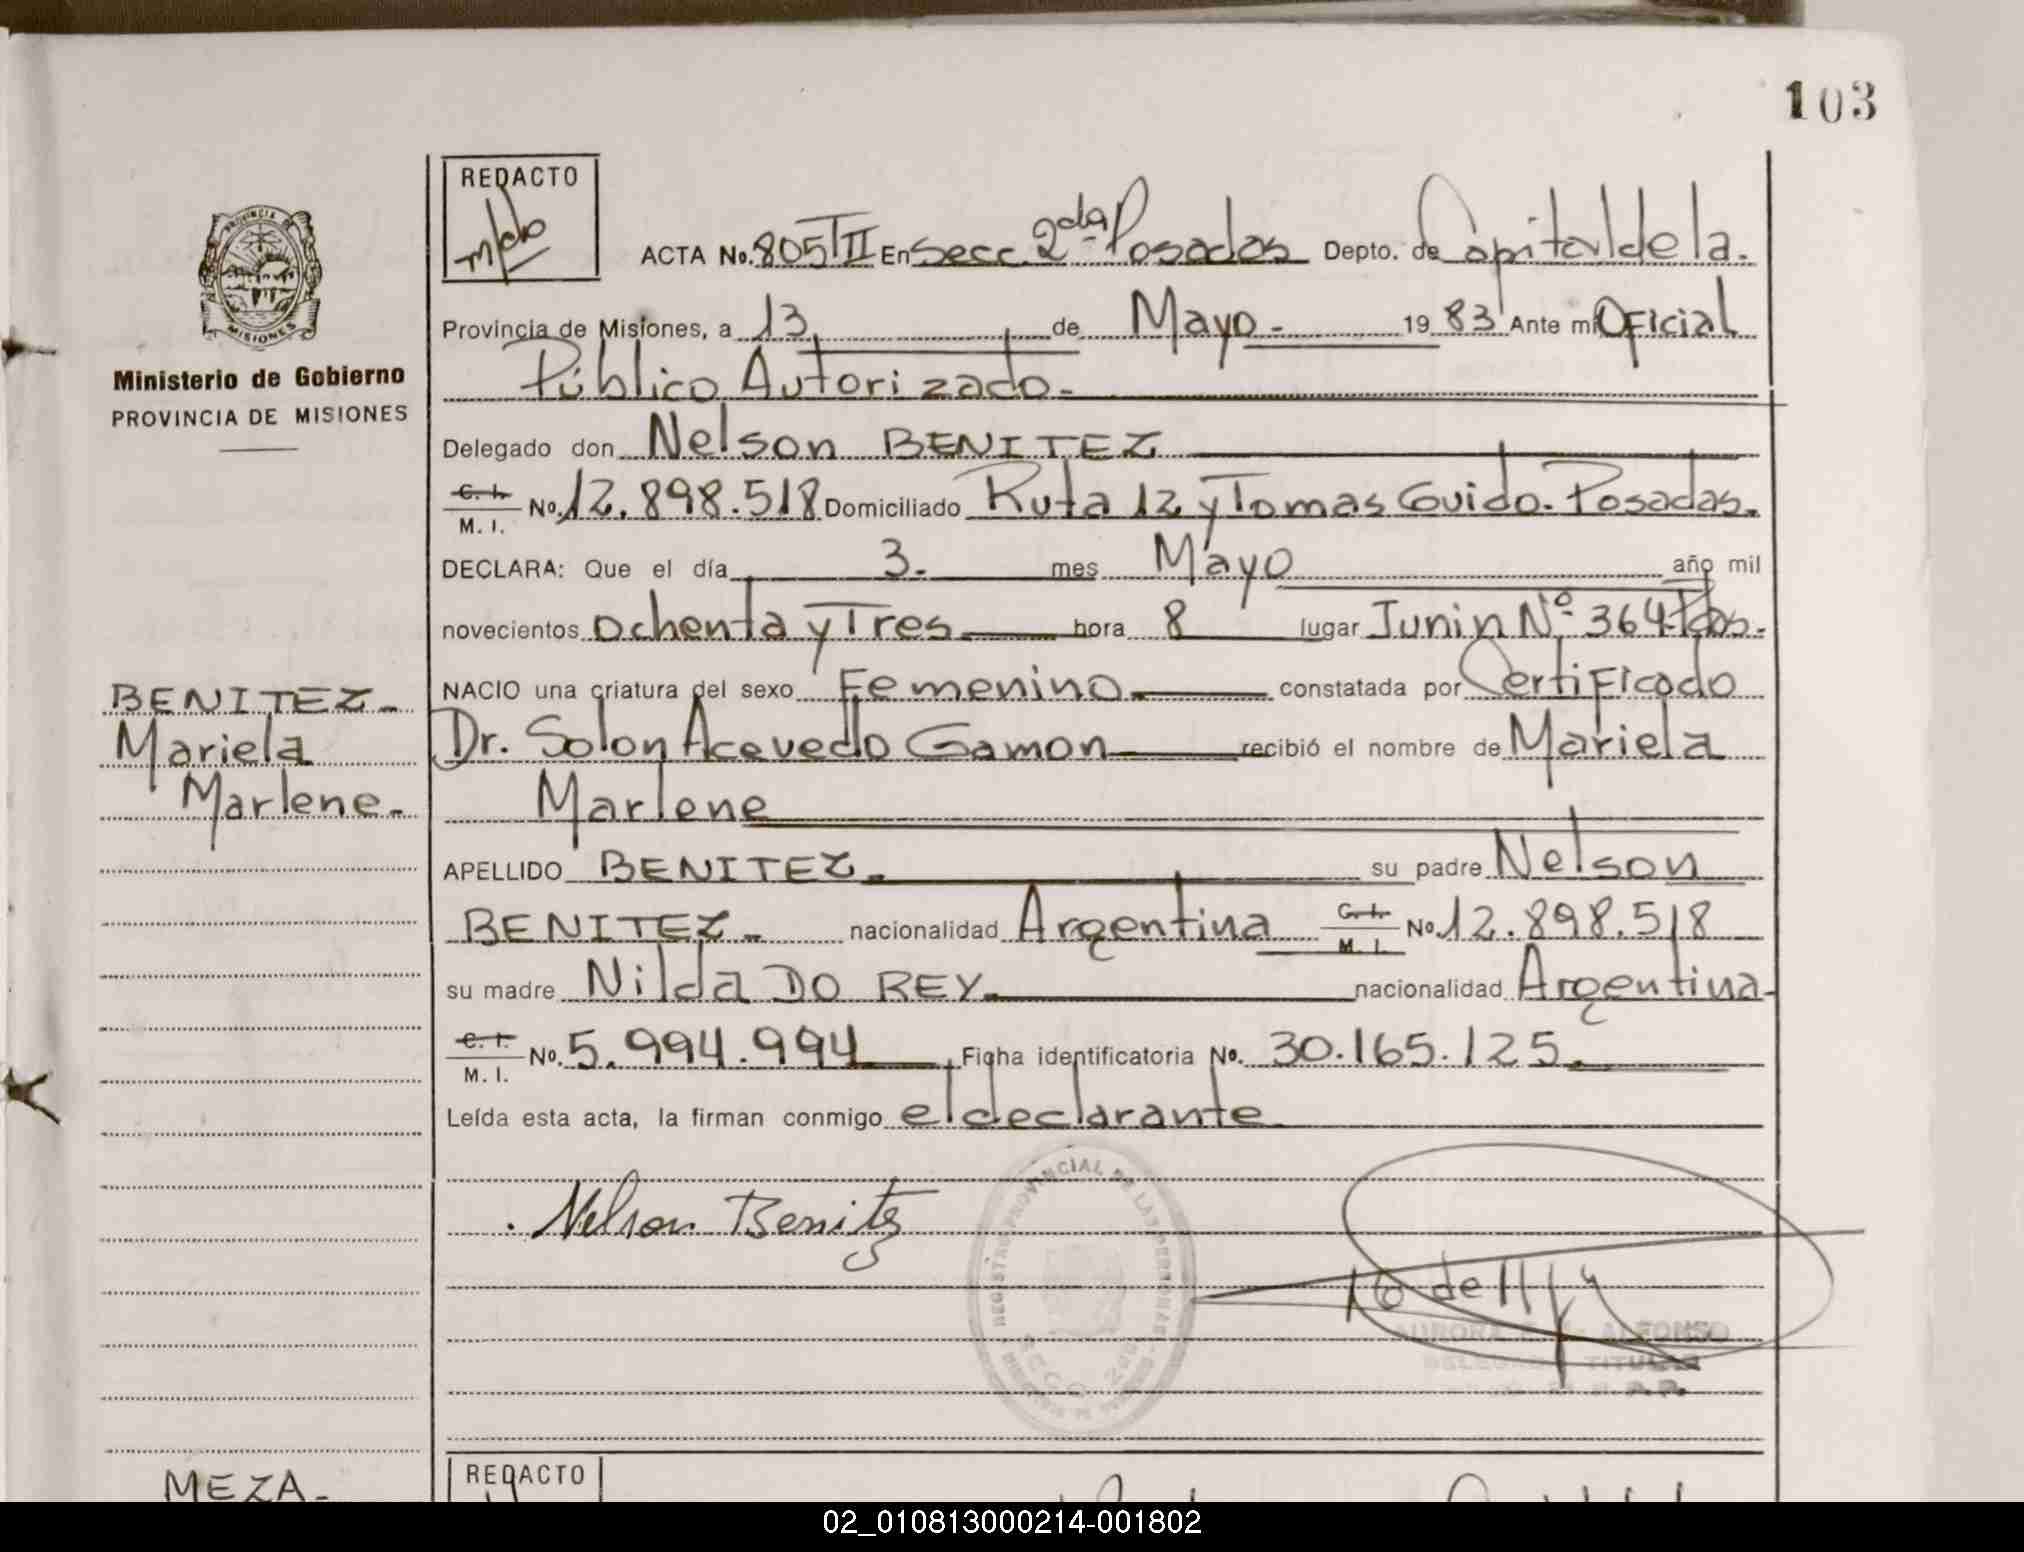 103
REDACTO
ACTA No. 805 TII En Secc. 2da. Posadas Depto. de Capital de la.
Provincia de Misiones, a 13 de Mayo - 19 83 Ante mi Oficial
Público Autorizado.
Delegado don Nelson BENITEZ
C. I. M. I. No. 12.898.518 Domiciliado Ruta 12 y Tomas Guido. Posadas.
DECLARA: Que el día 3. mes Mayo año mil
novecientos ochenta y Tres hora 8 lugar Junin Nº 364 Pdas.
NACIO una criatura del sexo Femenino constatada por Certificado
Dr. Solon Acevedo Gamon recibió el nombre de Mariela
Marlene
APELLIDO BENITEZ. su padre Nelson
BENITEZ - nacionalidad Argentina C. I. M. I. No. 12.898.518
su madre Nilda DO REY nacionalidad Argentina
C. I. M. I. No. 5.994.994 Ficha identificatoria No. 30.165.125.
Leída esta acta, la firman conmigo el declarante
Nelson Benitez
REGISTRO PROVINCIAL DE LAS PERSONAS
ALFONSO
TITULAR
PROVINCIA DE
MISIONES
Ministerio de Gobierno
PROVINCIA DE MISIONES
BENITEZ -
Mariela
Marlene.
MEZA -
REDACTO
02_010813000214-001802